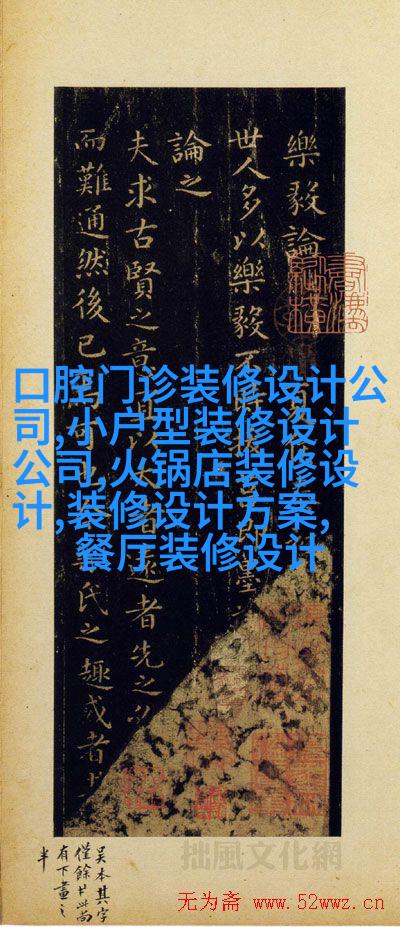 樂毅論
世人多以樂毅
論之
夫求古賢之意
者遠者先之
而難通然後已
氏之趣或者
口腔门诊装修设计公
司,小户型装修设计
公司,火锅店装修设
计,装修设计方案,
餐厅装修设计
吴本其字
僅餘廿此尚
有下畫之
半
拙風文化網
无为斋 www.52wwz.cn